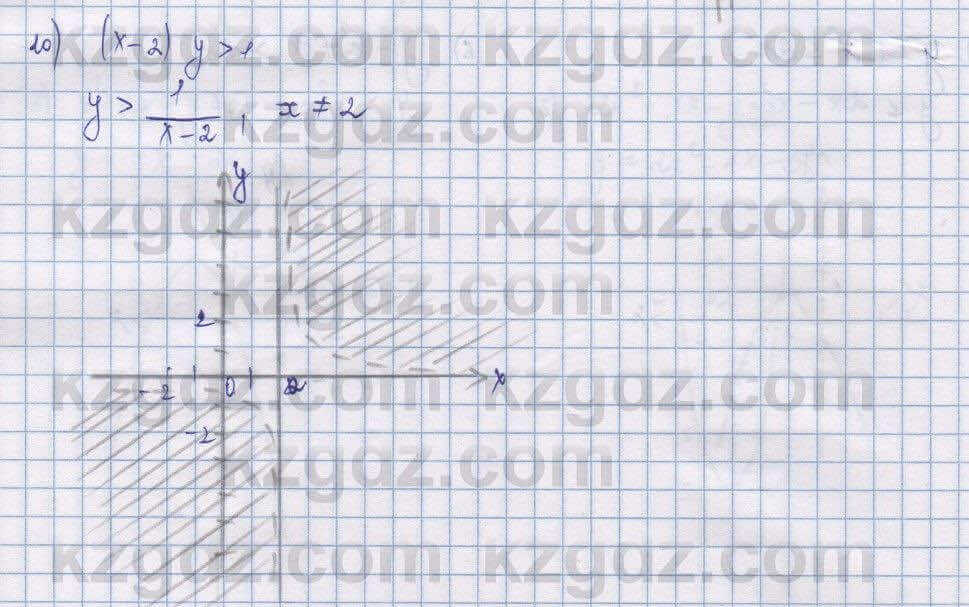 20) (x-2) y > 1
y > 1/(x-2), x ≠ 2
y
2
-2 0 2 x
-2
kzgdz.com kzgdz.com
kzgdz.com
kzgdz.com kzgdz.com
kzgdz.com
kzgdz.com kzgdz.com
kzgdz.com
kzgdz.com kzgdz.com